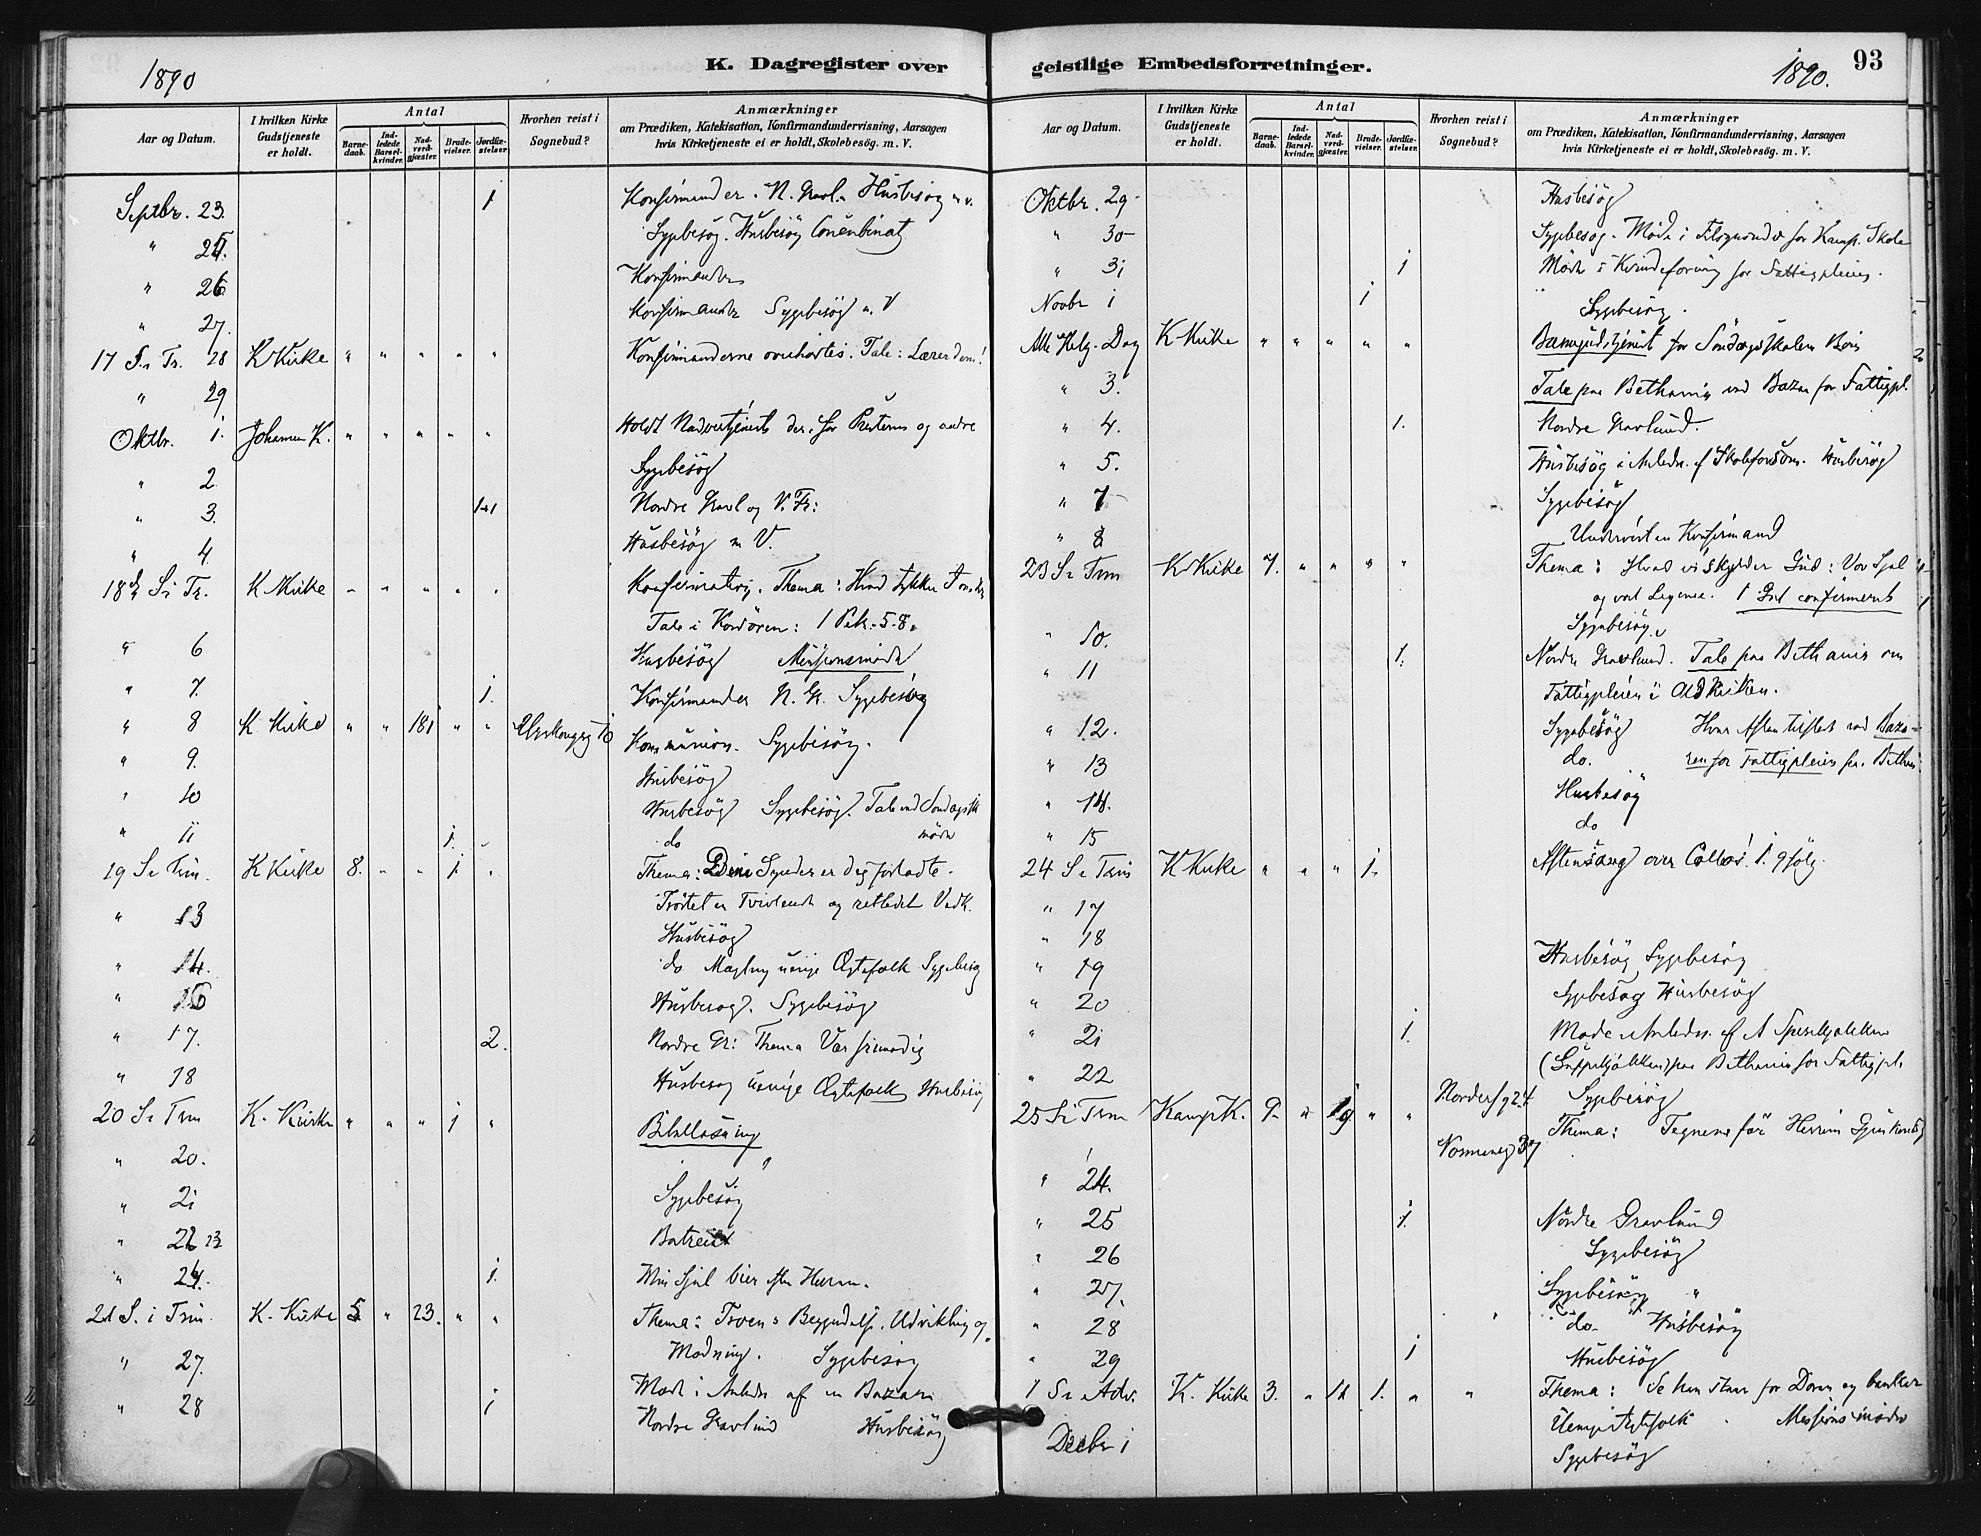 1890
K. Dagregister over
Aar og Datum.
I hvilken Kirke
Gudstjeneste
er holdt.
Antal
Barne-
daab.
Ind-
ledede
Barsel-
kvinder.
Nad-
verd-
gjæster.
Brude-
vielser.
Jordfæ-
stelser.
Hvorhen reist i
Sognebud?
Anmærkninger
om Prædiken, Katekisation, Konfirmandundervisning, Aarsagen
hvis Kirketjeneste ei er holdt, Skolebesøg. m. V.
Septbr. 23. 1 Konfirmander. N. Gravl. Husbesøg
" 25. Sygebesøg. Husbesøg
" 26 Konfirmander
" 27. Konfirmander Sygebesøg m. V
17 S. i Tr. 28 K Kirke " " " " " Konfirmanderne overhørtes. Tale:
" 29
Oktbr. 1. Johannes K. " " " " " Holdt Nadvertjeneste der, for Presterne og andre
" 2 Sygebesøg
" 3. 1+1 Nordre Gravl og V. Fr:
" 4. Husbesøg m V.
18 S. i Tr. K Kirke " " " " " Konfirmation. Thema: Hvad tykkes
Tale i Kordøren: 1 Pet. 5-8.
" 6 Husbesøg Missionsmøde
" 7. 1. Konfirmander N. Gr. Sygebesøg
" 8 K. Kirke " " 181 " " Kommunion. Sygebesøg.
" 9. Husbesøg
" 10 Husbesøg Sygebesøg. Tale ved Søndagssk
" 11 1. do møde
19 S. i Trin. K Kirke 8. " " 1. " Thema: Dine Synder er dig forladte.
" 13
Husbesøg
" 14. do Mægling uenige Ægtefolk Sygebesøg
" 16 Husbesøg. Sygebesøg
" 17. 2. Nordre Gr: Thema Vær frimodig
" 18 Husbesøg uenige Ægtefolk Husbesøg
20 S. i Trin K. Kirke " " " 1 " Bibellæsning
" 20. "
" 21 Sygebesøg
" 22 23 Bortreist
" 24. 1. Min Sjæl bier efter Herren.
21 S. i Trin. K. Kirke 5 " 23. " " Thema: Troens Begyndelse, Udvikling og
" 27. Modning. Sygebesøg
" 28 1 Møde i Anledn af en Bazar
Nordre Gravlund Husbesøg
geistlige Embedsforretninger.
1890.
93
Aar og Datum.
I hvilken Kirke
Gudstjeneste
er holdt.
Antal
Barne-
daab.
Ind-
ledede
Barsel-
kvinder.
Nad-
verd-
gjæster.
Brude-
vielser.
Jordfæ-
stelser.
Hvorhen reist i
Sognebud?
Anmærkninger
om Prædiken, Katekisation, Konfirmandundervisning, Aarsagen
hvis Kirketjeneste ei er holdt, Skolebesøg. m. V.
Oktbr. 29. Husbesøg
" 30 Sygebesøg. Møde i Tilsynsraadet for Kamp. Skole
" 31 1 Møde i Kvindeforening for Fattigpleien.
Novbr 1 1 Sygebesøg.
Alle Helg. Dag K Kirke " " " " " Barnegudstjeneste for Søndagsskolens Børn
" 3. Tale paa Bethania ved Bazar for Fattigpl.
" 4. 1. Nordre Gravlund.
" 5. Husbesøg i Anledn. af Skoleforsøm. Husbesøg
" 7 Sygebesøg
" 8 Underviste en Konfirmand
23 S. i Trin K Kirke 7. " " " " Thema: Hvad vi skylder Gud: Vor Sjæl
og vort Legeme. 1 Gut confirmeret
" 10. Sygebesøg
" 11 1. Nordre Gravlund. Tale paa Bethania om
Fattigpleien i Oldkirken.
" 12. Sygebesøg Hver Aften tilstede ved Baza-
" 13 do. ren for Fattigpleien paa Bethania
" 14. Husbesøg
" 15 do
24 S. i Trin K Kirke " " " 1. Aftensang over Collos. 1. 9 følg.
" 17
" 18
" 19 Husbesøg Sygebesøg
" 20 Sygebesøg Husbesøg
" 21 1. Møde i Anledn. af
" 22 (Suppekjøkken) paa Bethania for Fattigpl.
25 S. i Trin Kamp K. 9. " 19 " " Nordersg 24 Sygebesøg
Normanng 37 Thema: Tegnene før Herrens Gjenkomst
" 24.
" 25 1. Nordre Gravlund
" 26 Sygebesøg
" 27. Sygebesøg "
" 28 do. Husbesøg
" 29 1 Husbesøg
1 S. i Adv. K. Kirke 3. " 1. " " Thema: Se han staar for Døren og banker
Uenige Ægtefolk. Missionsmøde
Decbr 1 Sygebesøg